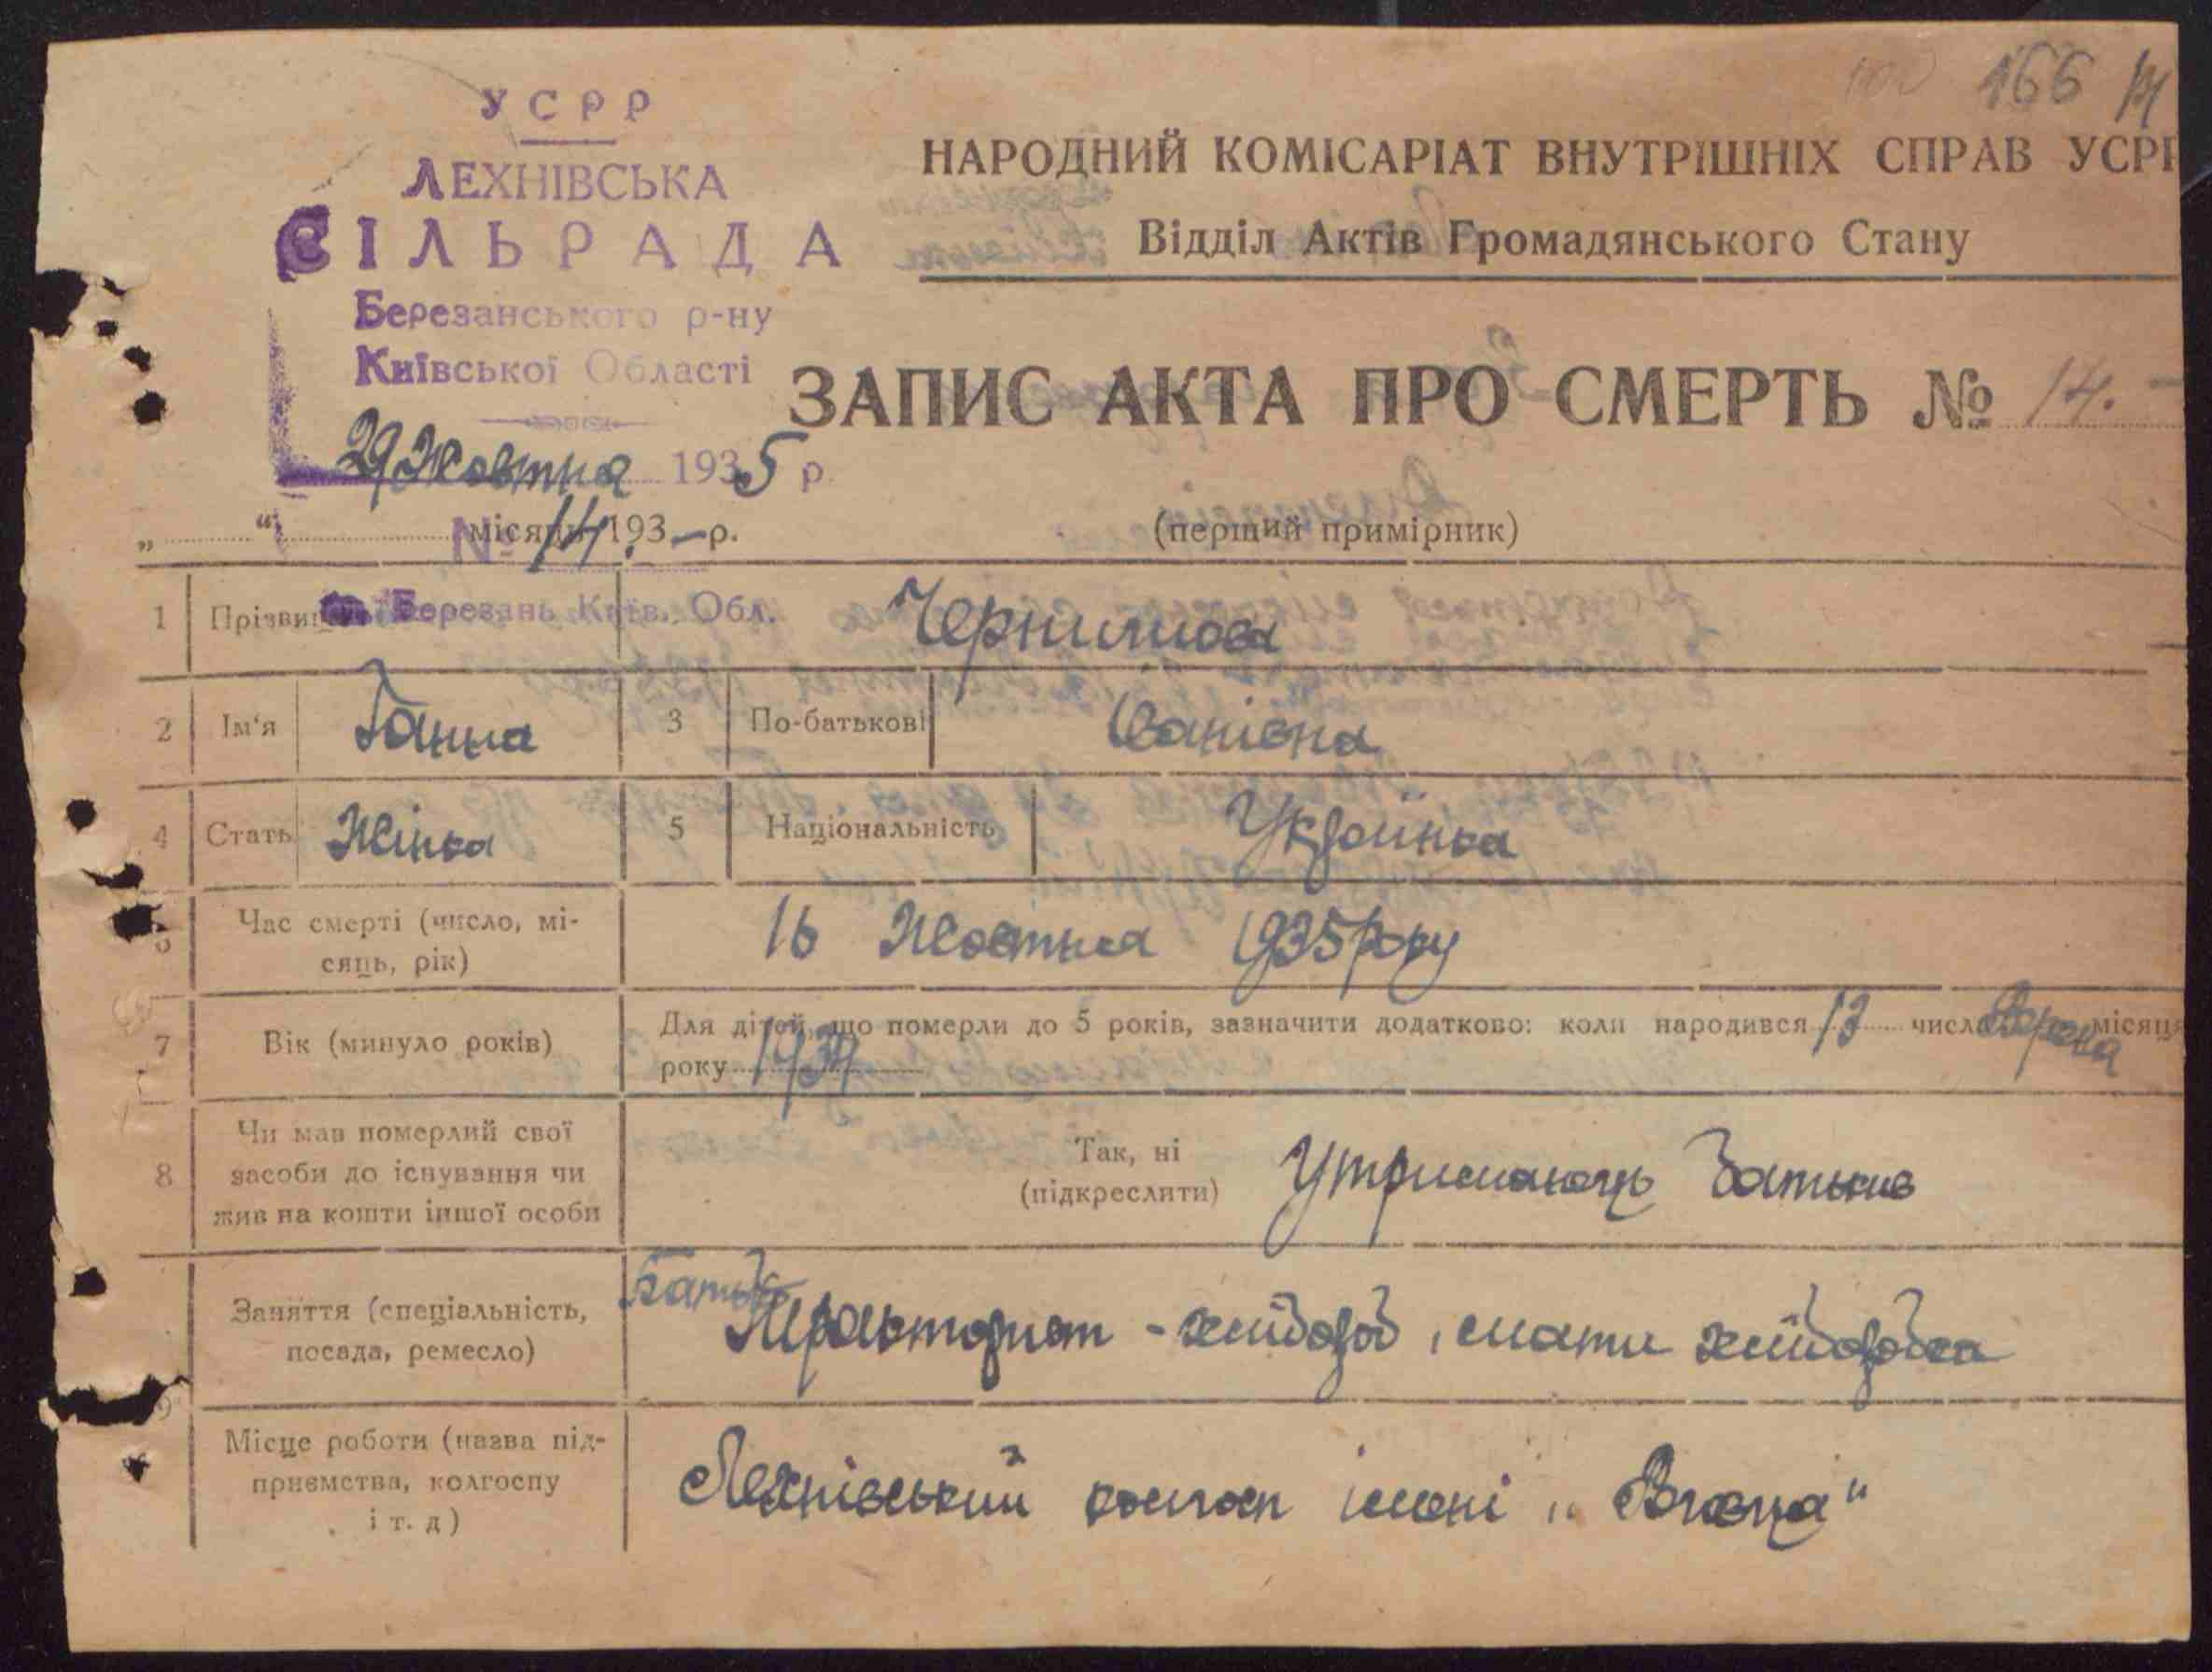 166
УСРР
ЛЕХНІВСЬКА
СІЛЬРАДА
Березанського р-ну
Київської Області
29 Жовтня 1935 р.
№ 14.
Березань Київ. Обл.
НАРОДНИЙ КОМІСАРІАТ ВНУТРІШНІХ СПРАВ УСРР
Відділ Актів Громадянського Стану
ЗАПИС АКТА ПРО СМЕРТЬ № 14.-
„ “ місяця 193-р.
(перший примірник)
1 Прізвище
2 Ім'я Ганна 3 По-батькові Іванівна
4 Стать Жінка 5 Національність Українка
6 Час смерті (число, мі-
сяць, рік) 16 Жовтня 1935 року
7 Вік (минуло років) Для дітей, що померли до 5 років, зазначити додатково: коли народився 13 числа місяця
року 1934
8 Чи мав померлий свої
засоби до існування чи
жив на кошти іншої особи
Так, ні
(підкреслити) Утриманець Батьків
Заняття (спеціальність,
посада, ремесло) Батько - хлібороб, мати хліборобка
Місце роботи (назва під-
приємства, колгоспу
і т. д) Лехнівський колгосп імені „ "